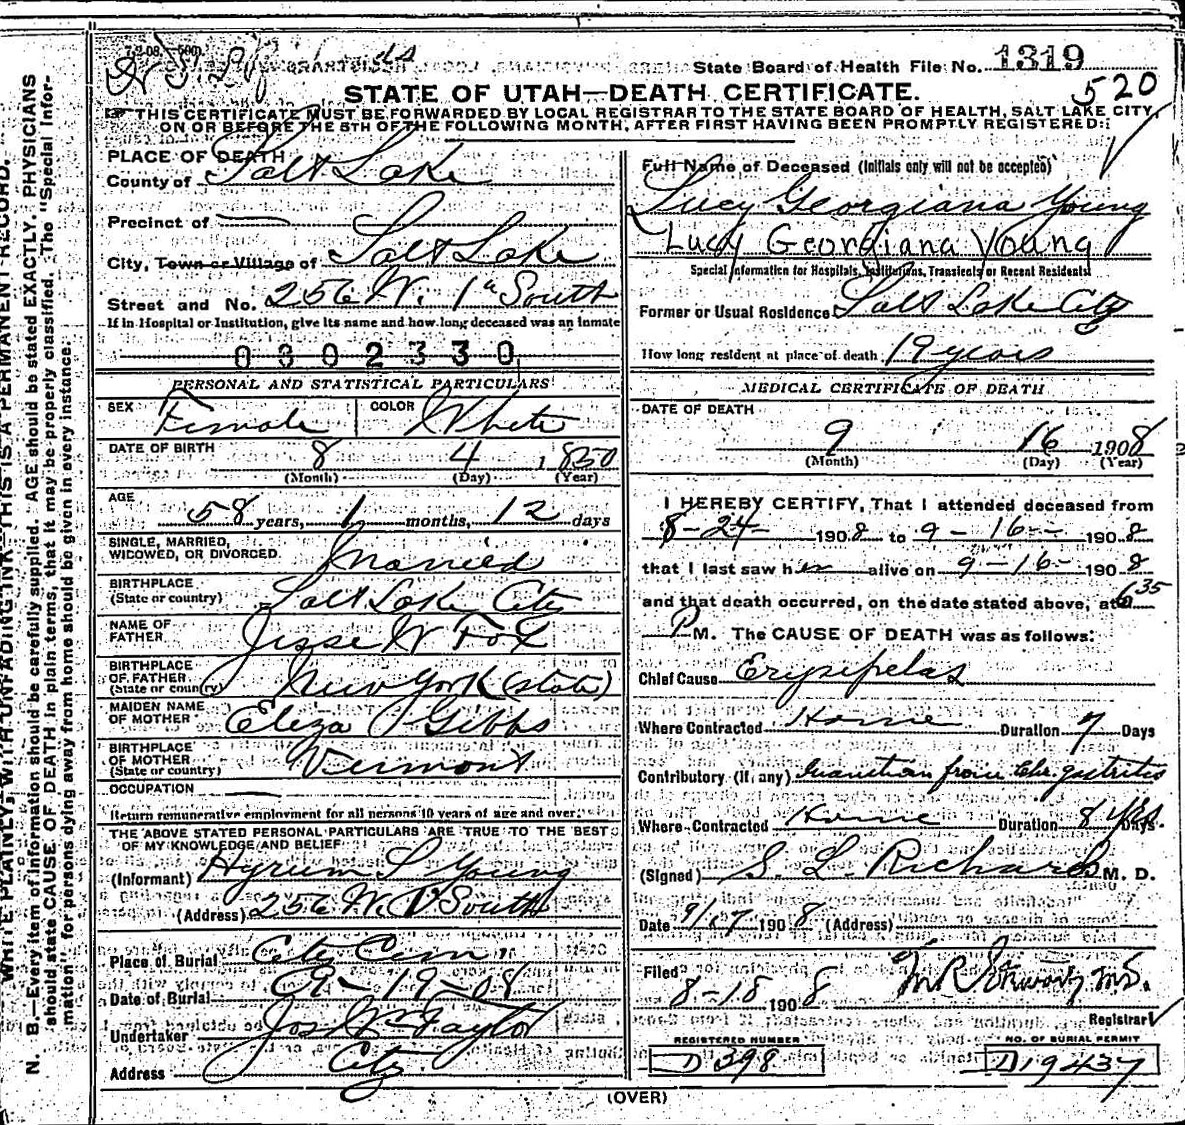 State Board of Health File No. 1319
520
STATE OF UTAH—DEATH CERTIFICATE.
☞ THIS CERTIFICATE MUST BE FORWARDED BY LOCAL REGISTRAR TO THE STATE BOARD OF HEALTH, SALT LAKE CITY,
ON OR BEFORE THE 5TH OF THE FOLLOWING MONTH, AFTER FIRST HAVING BEEN PROMPTLY REGISTERED:
PLACE OF DEATH
County of Salt Lake
Precinct of —
City, Town or Village of Salt Lake
Street and No. 256 W. 1st South
If in Hospital or Institution, give its name and how long deceased was an inmate
0302330
PERSONAL AND STATISTICAL PARTICULARS
SEX Female COLOR White
DATE OF BIRTH 8 4 1850
(Month) (Day) (Year)
AGE
58 years, 1 months, 12 days
SINGLE, MARRIED,
WIDOWED, OR DIVORCED Married
BIRTHPLACE
(State or country) Salt Lake City
NAME OF
FATHER Jesse W Fox
BIRTHPLACE
OF FATHER
(State or country) New York (state)
MAIDEN NAME
OF MOTHER Eliza Gibbs
BIRTHPLACE
OF MOTHER
(State or country) Vermont
OCCUPATION —
Return remunerative employment for all persons 10 years of age and over.
THE ABOVE STATED PERSONAL PARTICULARS ARE TRUE TO THE BEST
OF MY KNOWLEDGE AND BELIEF
(Informant) Hyrum S Young
(Address) 256 W. 1st South
Place of Burial City Cem.
Date of Burial 9-19-08
Undertaker Jos Wm Taylor
Address City
Full Name of Deceased (Initials only will not be accepted)
Lucy Georgiana Young
Lucy Georgiana Young
Special Information for Hospitals, Institutions, Transients or Recent Residents
Former or Usual Residence Salt Lake City
How long resident at place of death 19 years
MEDICAL CERTIFICATE OF DEATH
DATE OF DEATH
9 16 1908
(Month) (Day) (Year)
I HEREBY CERTIFY, That I attended deceased from
8-24- 1908 to 9-16- 1908
that I last saw her alive on 9-16- 1908
and that death occurred, on the date stated above, at 6 35
P M. The CAUSE OF DEATH was as follows:
Chief Cause Erysipelas
Where Contracted Home Duration 7 Days
Contributory (if any) Inanition from Chr gastritis
Where Contracted Home Duration 8 yrs Days
(Signed) S. L. Richards M. D.
Date 9/17 1908 (Address)
Filed 8-18 1908
Registrar
REGISTERED NUMBER
D 398
NO. OF BURIAL PERMIT
D19437
(OVER)
WRITE PLAINLY, WITH UNFADING INK—THIS IS A PERMANENT RECORD.
N. B.—Every item of information should be carefully supplied. AGE should be stated EXACTLY. PHYSICIANS
should state CAUSE OF DEATH in plain terms, that it may be properly classified. The "Special Infor-
mation" for persons dying away from home should be given in every instance.